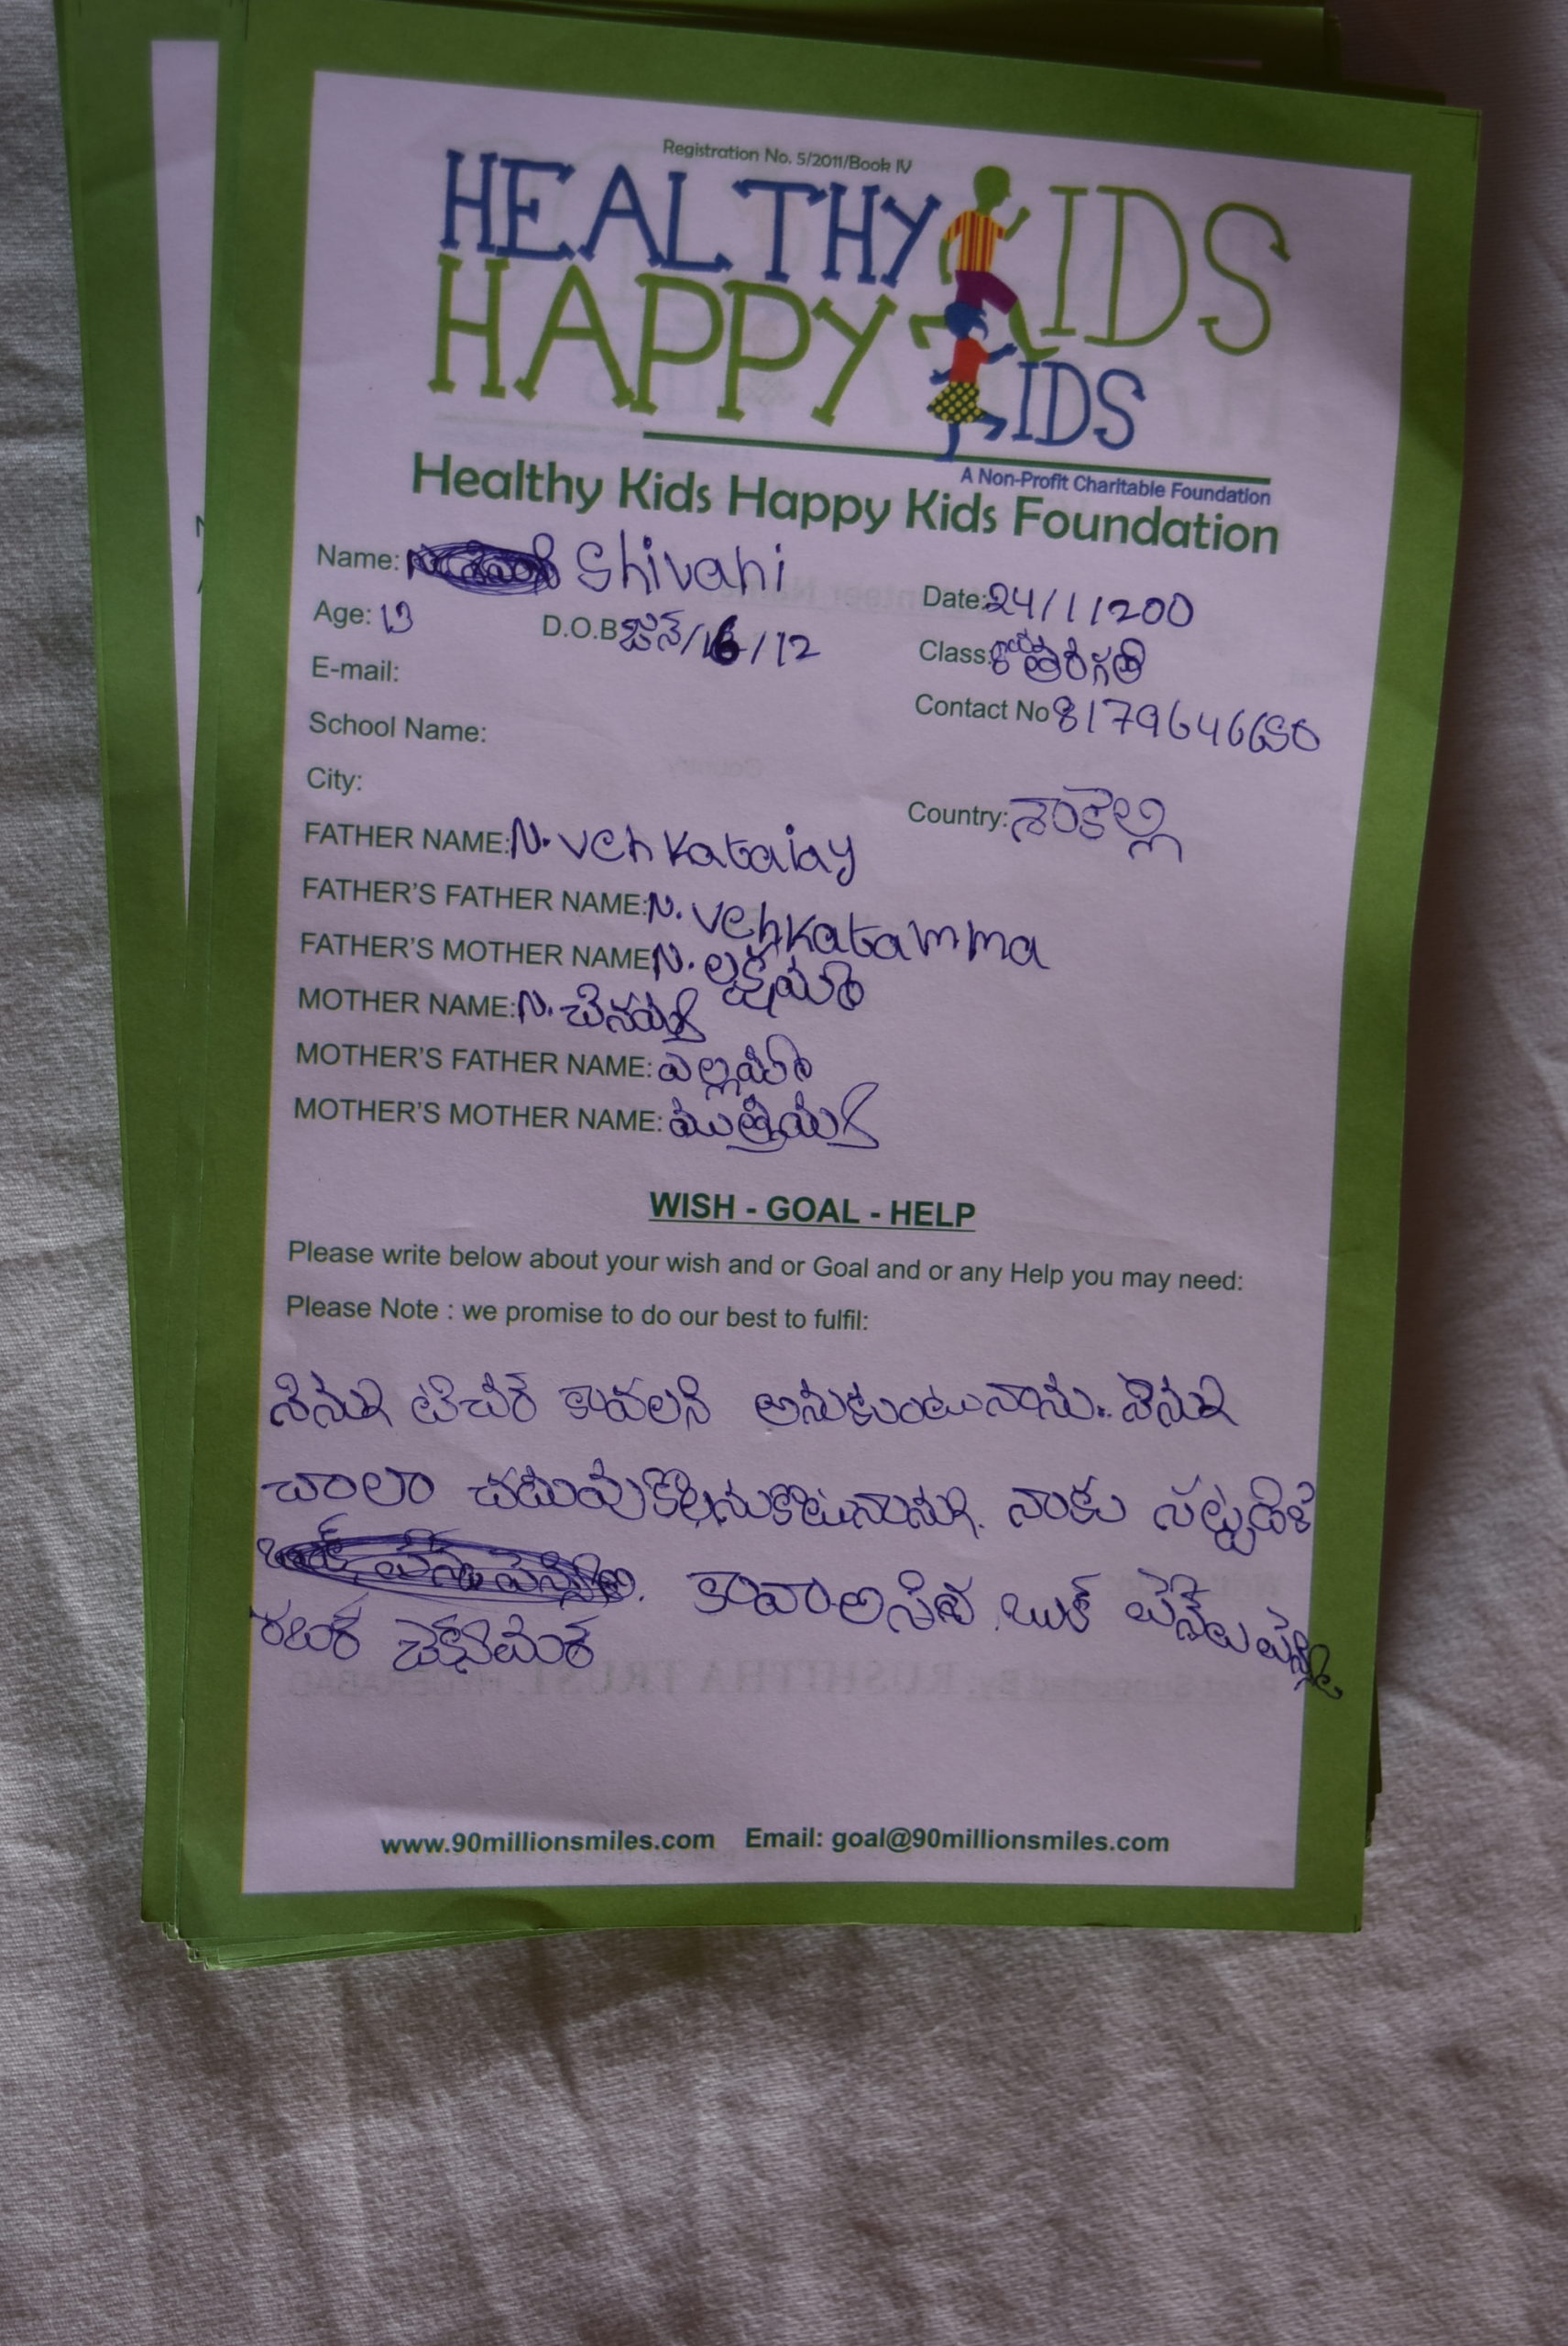 Registration No. 5/2011/Book IV
HEALTHY KIDS
HAPPY KIDS
A Non-Profit Charitable Foundation
Healthy Kids Happy Kids Foundation
Name: Shivani
Date: 24/11200
Age: 13
D.O.B జున్/16/12
Class: 8వ తరగతి
E-mail:
Contact No 8179646650
School Name:
City:
Country:
FATHER NAME: N. Venkataiay
FATHER'S FATHER NAME: N. Venkatamma
FATHER'S MOTHER NAME N. లక్ష్మమ్మ
MOTHER NAME: N.
MOTHER'S FATHER NAME: ఎల్లయ్య
MOTHER'S MOTHER NAME:
WISH - GOAL - HELP
Please write below about your wish and or Goal and or any Help you may need:
Please Note : we promise to do our best to fulfil:
నేను టిచర్ కావలని అనుకుంటునాను. నేను
చాలా నాకు
బుక్
www.90millionsmiles.com Email: goal@90millionsmiles.com